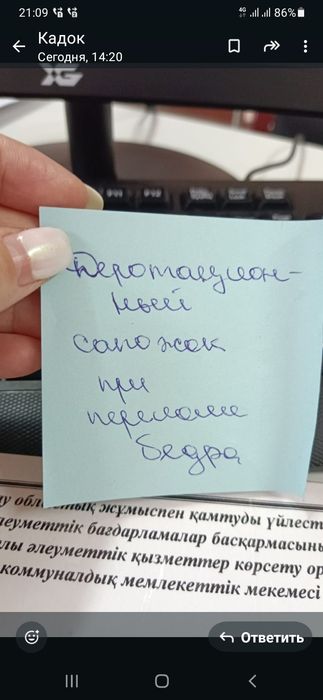 21:09
4G
86%
Кадок
Сегодня, 14:20
XG
F11 F12
Деротацион-
ный
сапожок
при
переломе
бедра
у облыстық жұмыспен қамтуды үйлест
леуметтік бағдарламалар басқармасынь
лы әлеуметтік қызметтер көрсету ор
коммуналдық мемлекеттік мекемесі
Ответить